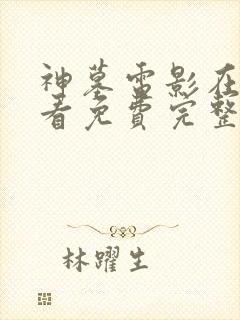 神墓雷影在
看免费完整
林躍生